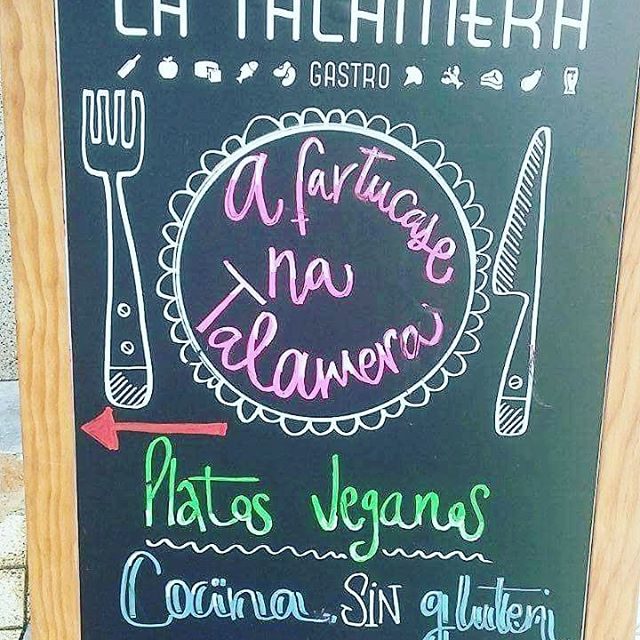 LA TALAMERA
GASTRO
a fartucase
na
Talamera
Platos veganos
Cocina SIN gluten